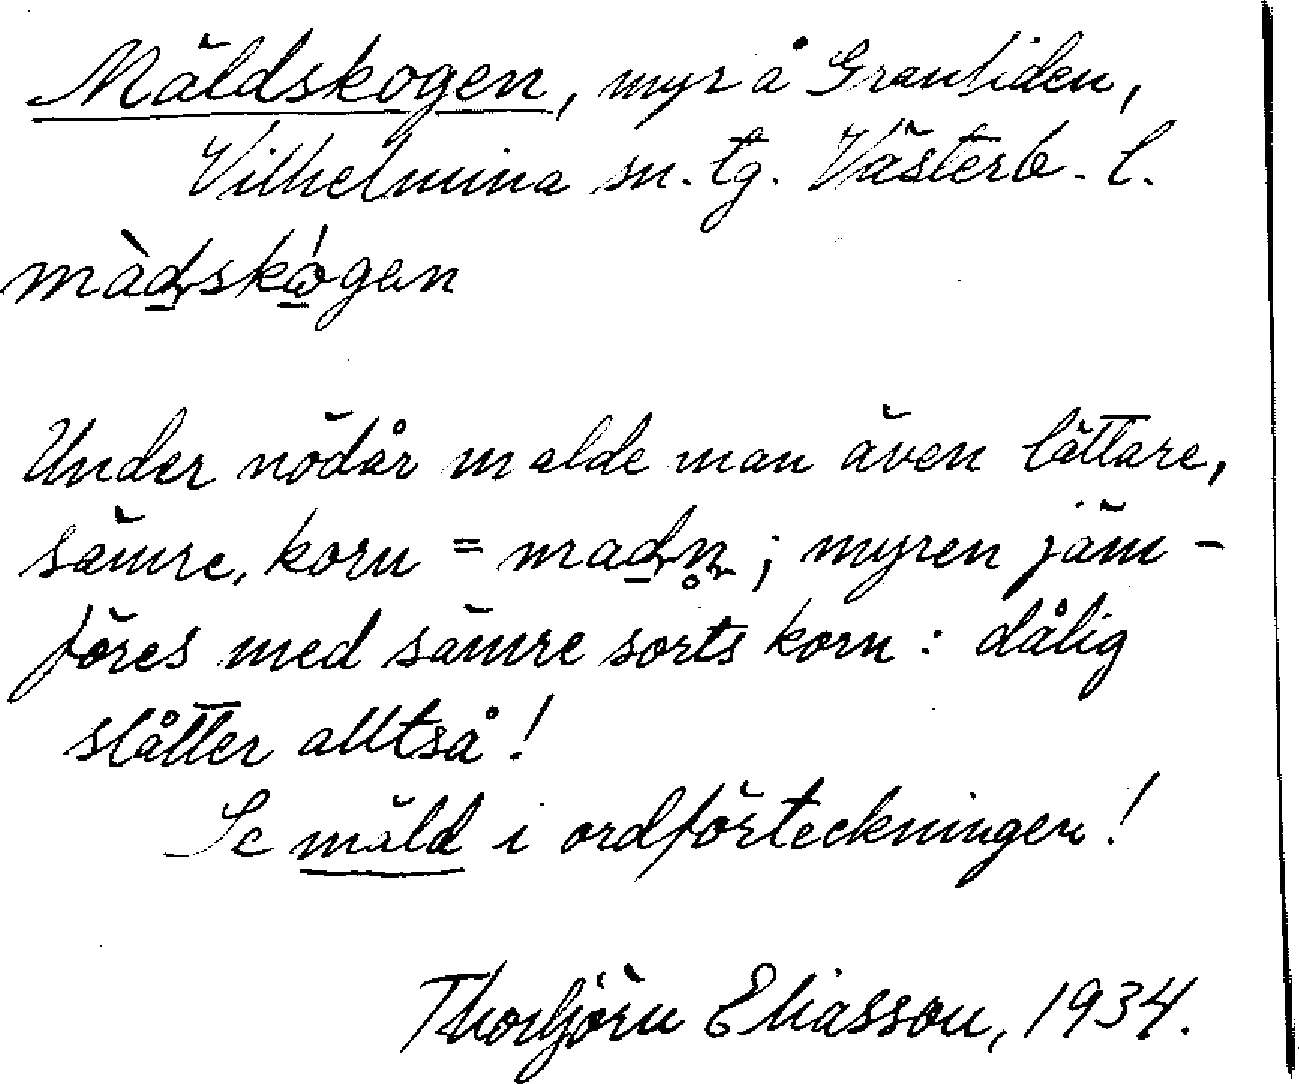 Mäldskogen, myr å Granliden,
Vilhelmina sn. tg. Västerb. l.
Under nödår malde man även lättare,
sämre, korn = ; myren jäm-
föres med sämre sorts korn: dålig
slåtter alltså!
Se mäld i ordförteckningen!
Thorbjörn Eliasson, 1934.